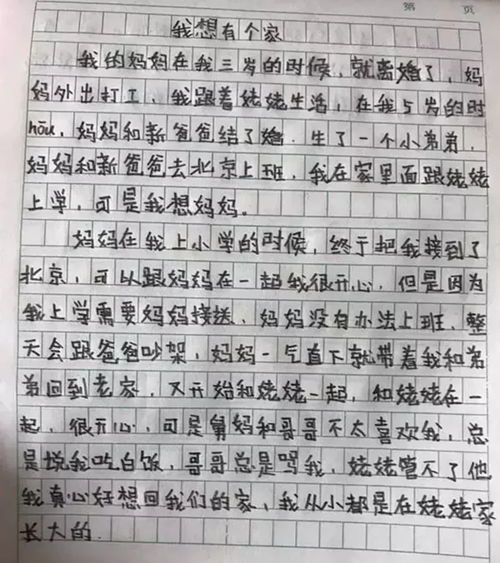 第 页
我想有个家
我的妈妈在我三岁的时候，就离婚了，妈
妈外出打工、我跟着姥姥生活，在我5岁的时
hōu，妈妈和新爸爸结了婚．生了一个小弟弟，
妈妈和新爸爸去北京上班，我在家里面跟姥姥
上学，可是我想妈妈。
妈妈在我上小学的时候，终于把我接到了
北京，可以跟妈妈在一起我很开心，但是因为
我上学需要妈妈接送、妈妈没有办法上班，整
天会跟爸爸吵架，妈妈一气直下就带着我和弟
弟回到老家，又开始和姥姥一起，和姥姥在一
起，很开心，可是舅妈和哥哥不太喜欢我，总
是说我吃白饭，哥哥总是骂我，姥姥管不了他
我真心好想回我们的家，我从小都是在姥姥家
长大的．